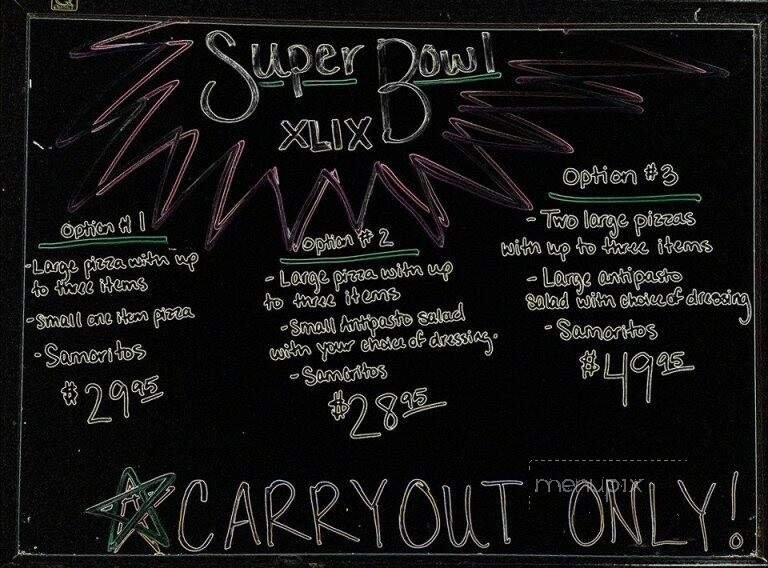 Super Bowl
XLIX
Option # 1
- Large pizza with up
to three items
- small one item pizza
- Samoritos
$29.95
Option # 2
- Large pizza with up
to three items
- Small Antipasto salad
with your choice of dressing.
- Samoritos
$28.95
Option # 3
- Two large pizzas
with up to three items
- Large antipasto
salad with choice of dressing
- Samoritos
$49.95
CARRYOUT ONLY!
menupix